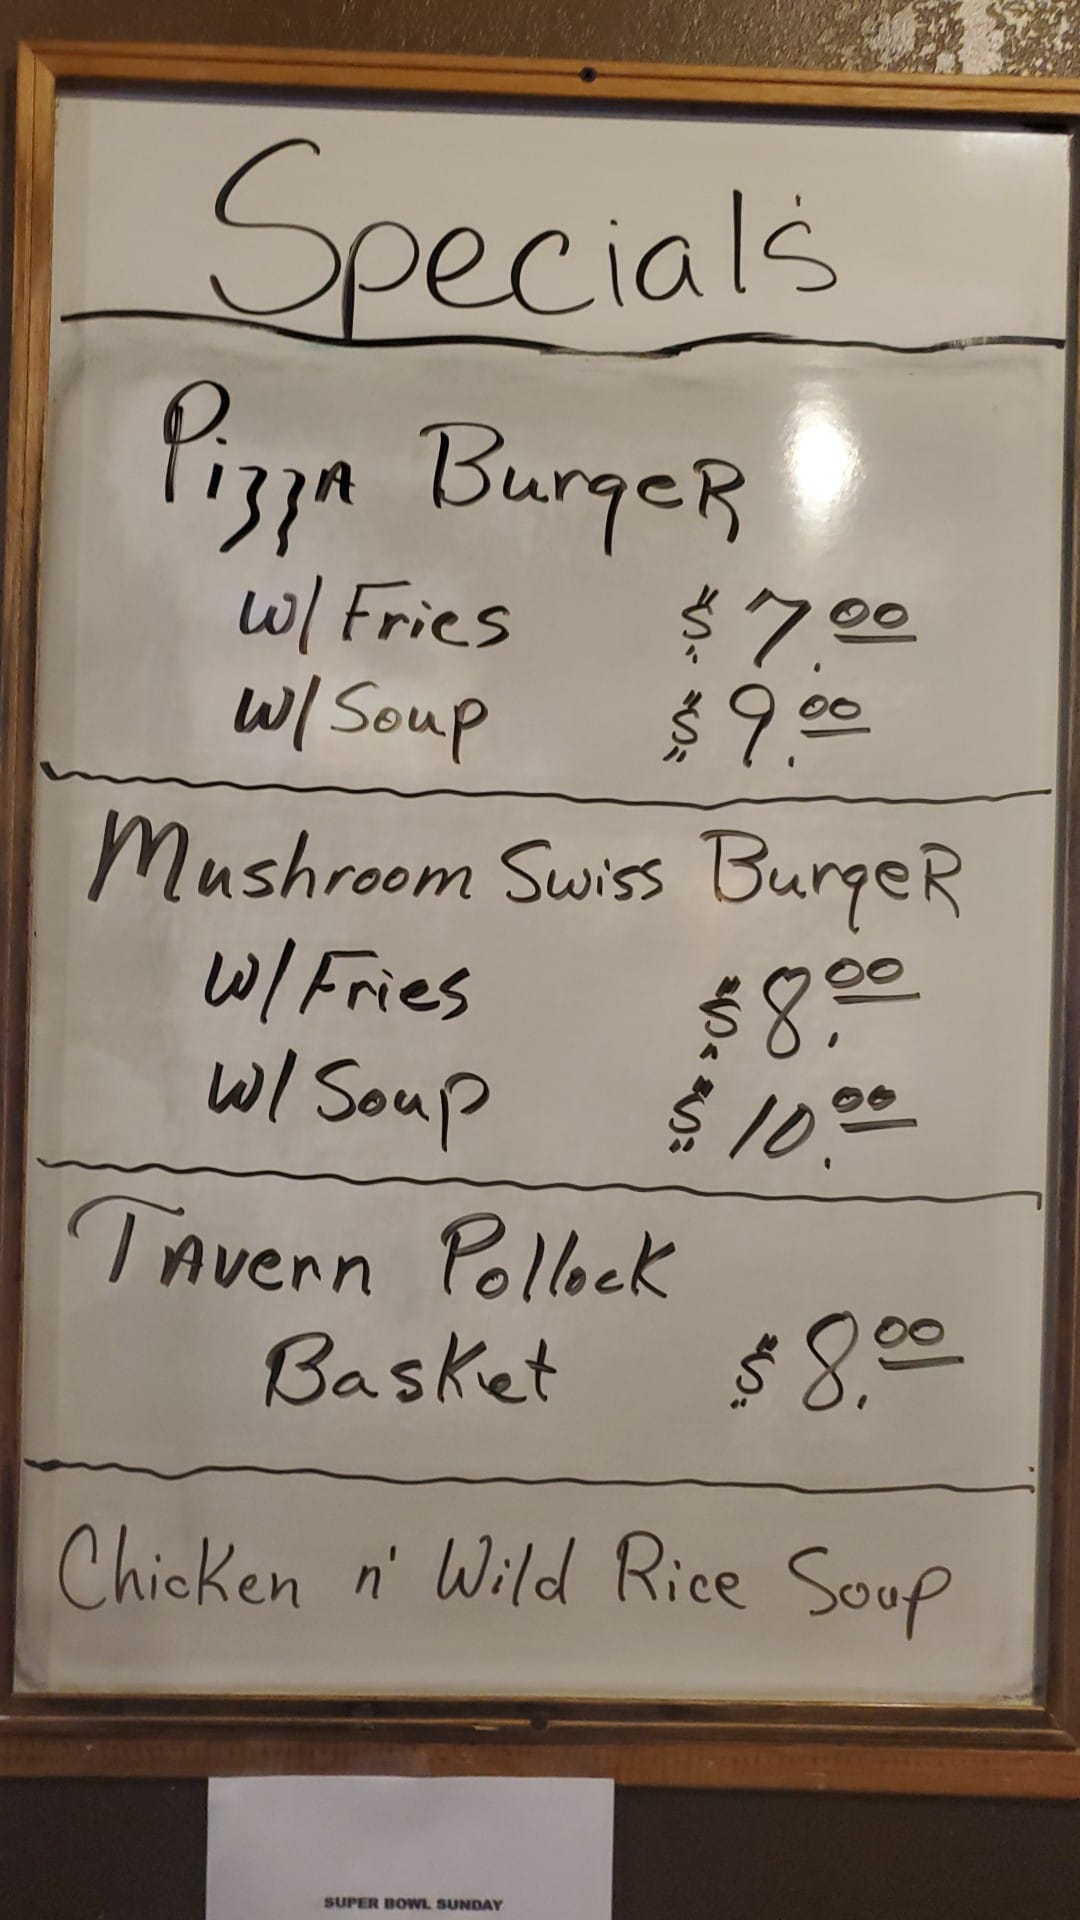 Specials
Pizza Burger
w/ Fries $7.00
w/ Soup $9.00
Mushroom Swiss Burger
w/ Fries $8.00
w/ Soup $10.00
Tavern Pollock
Basket $8.00
Chicken n' Wild Rice Soup
SUPER BOWL SUNDAY